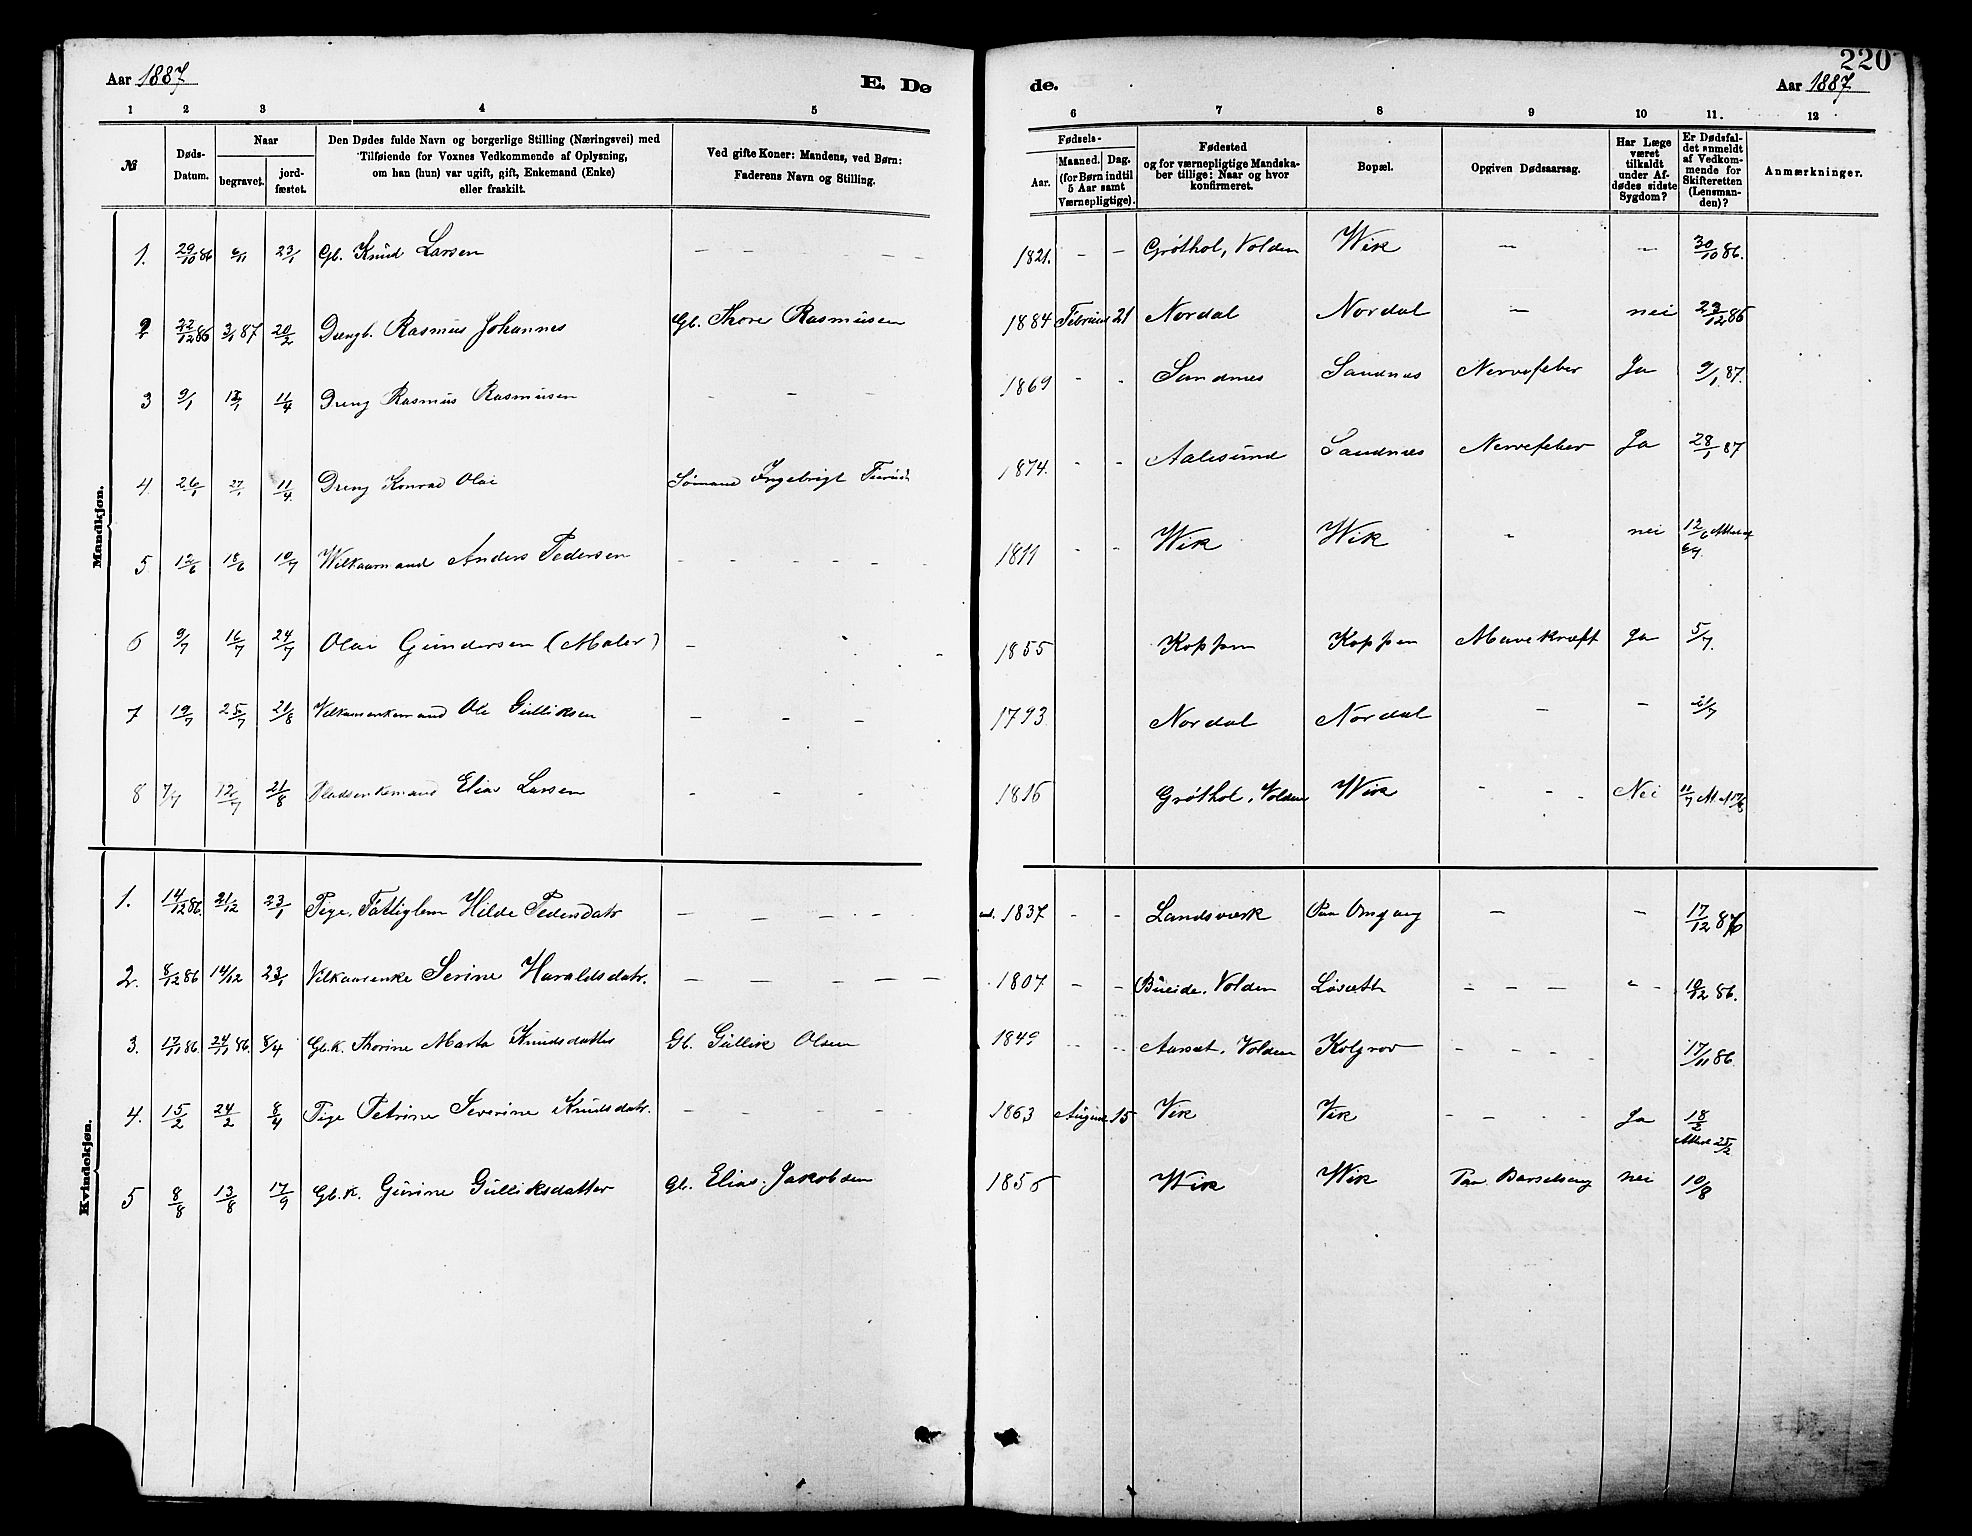 220
Aar 1887
E. Dø
de.
Aar 1887
1 2 3 4 5
6 7 8 9 10 11. 12
№
Døds-
Datum.
Naar
begravet.
jord-
fæstet.
Den Dødes fulde Navn og borgerlige Stilling (Næringsvei) med
Tilføiende for Voxnes Vedkommende af Oplysning,
om han (hun) var ugift, gift, Enkemand (Enke)
eller fraskilt.
Ved gifte Koner: Mandens, ved Børn:
Faderens Navn og Stilling.
Fødsels-
Aar.
Maaned. Dag.
(for Børn indtil
5 Aar samt
Værnepligtige).
Fødested
og for værnepligtige Mandska-
ber tillige: Naar og hvor
konfirmeret.
Bopæl.
Opgiven Dødsaarsag.
Har Læge
været
tilkaldt
under Af-
dødes sidste
Sygdom?
Er Dødsfal-
det anmeldt
af Vedkom-
mende for
Skifteretten
(Lensman-
den)?
Anmærkninger.
Mandkjøn.
1. 29/10 86 6/11 23/1 Gb. Knud Larsen – – – – 1821. – – Grøthol, Volden Wik – – 30/10 86.
2 22/12 86 3/1 87 20/2 Drengb. Rasmus Johannes Gb. Thore Rasmusen 1884 21 Nordal Nordal – nei 23/12 86
3 9/1 13/1 11/4 Dreng Rasmus Rasmusen – – – 1869 - - Sandnes Sandnes Nervefeber Ja 9/1 87.
4. 26/1 27/1 11/4 Dreng Konrad Olai Sømand Ingebrigt 1874. - - Aalesund Sandnes Nervefeber Ja 28/1 87
5 12/6 18/6 10/7 Wilkaarmand Anders Pedersen – – – – – – 18 - - Wik Wik - nei 12/6
6 9/7 16/7 24/7 Olai Gundersen (Maler) – 1855 Koppen Koppen Mavekræft Ja 5/7.
7 19/7 25/7 21/8 Ole Gulliksen – – – 1793 Nordal Nordal – – 21/7
8 7/7 12/7 21/8 Pladsenkemand Elias Larsen – – – 1816 Grøthol, Volden Wik - - - Nei 11/7
Kvindekjøn.
1. 14/12 86. 21/12 23/1 Pige, Fattiglem Hilde Pedersdatr – – – – – 1837 - - Landsværk Paa Omgang – – 17/12 86
2. 8/12 86 14/12 23/1 Vilkaarsenke Serine Haraldsdatr. – – – – – 1807 – – Bueide, Volden Løsætt – – – - - 86.
3. 17/11 86. 24/11 86. 8/4 Gb.K. Thorine Marta Knudsdatter Gb. Gullik Olsen 1849 -- -- Aarsæt, Volden Kolgrov – – – - 17/11 86.
4. 15/2 24/2 8/4 Pige Petrine Severine Knudsdatr. – – – – 1863 August 15 Vik Vik - – - - Ja 18/2 25/2
5 8/8 13/8 17/9 Gb.K. Gurine Gulliksdatter Gb. Elias Jakobsen 1856 Wik Wik Paa Barselseng nei 10/8